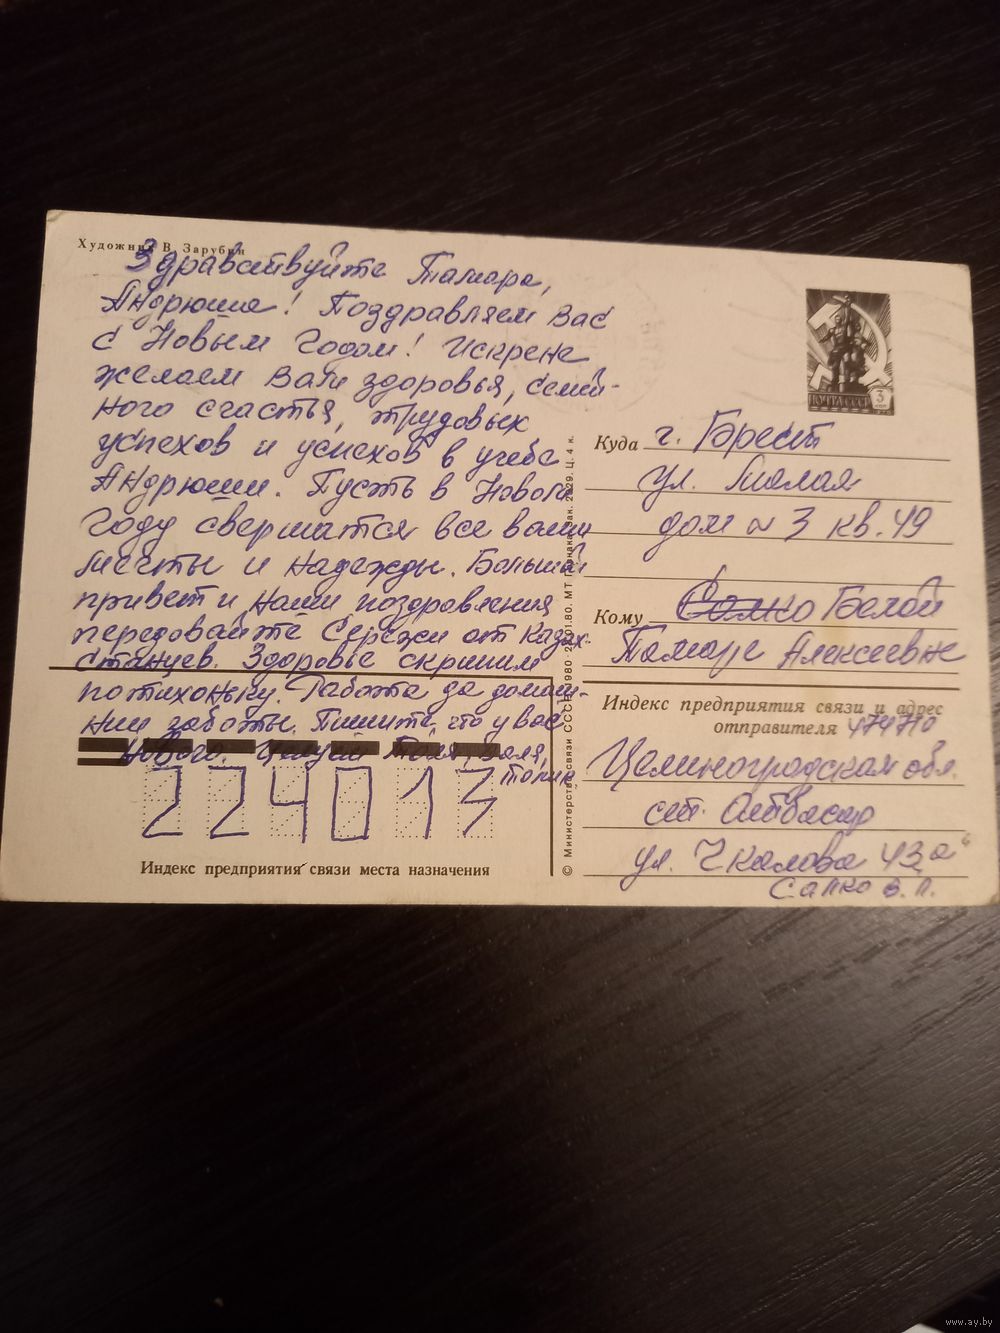 Художник В. Зарубин
Здравствуйте Тамара,
Андрюша! Поздравляем Вас
с Новым Годом! Искрене
желаем Вам здоровья, семей-
ного счастья, трудовых
успехов и успехов в учебе
Андрюши. Пусть в Новом
Году свершатся все ваши
мечты и надежды. Большой
привет и наши поздравления
передовайте Сережи от Казах-
станцев. Здоровье скрипим
потихоньку. Работа да домаш-
нии заботы. Пишите, что у вас
нового. Целуем Толя, Валя,
224013
Индекс предприятия связи места назначения
© Министерство связи СССР. 1980. МТ Гознака. Зак. Ц. 4 к.
ПОЧТА СССР 3
Куда г. Брест
ул. Малая
дом № 3 кв. 49
Кому Белой
Тамаре Алексеевне
Индекс предприятия связи и адрес
отправителя 474710
Целиноградская обл.
ст. Атбасар
ул. Чкалова 43 "а"
Сапко В. П.
www.ay.by